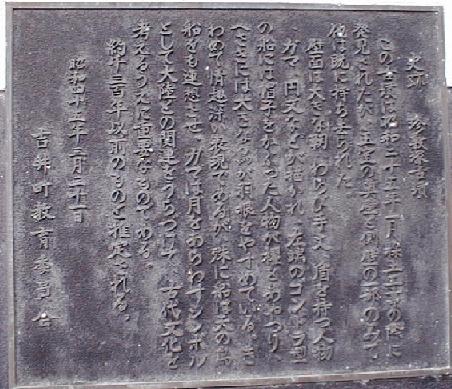 史跡 珍敷塚古墳
この古墳は昭和二十五年一月 採土工事の際に
発見されたが 主室の奥壁と側壁の一部のみで、
他は既に持ち去られた
壁面は大きな靱 わらび手文 盾を持つ人物
ガマ 円文などが描かれ 左端のゴンドラ型
の船には帽子をかぶった人物が櫂をあやつり、
へさきには大きな鳥が羽根をやすめている。き
わめて情趣深い表現であるが 殊に船は天の鳥
船をも連想させ、ガマは月をあらわすシンボル
として大陸との関連をうらづけて 古代文化を
考えるうえに重要なものである。
約千三百年以前のものと推定される。
昭和四十五年三月三十一日
吉井町教育委員会